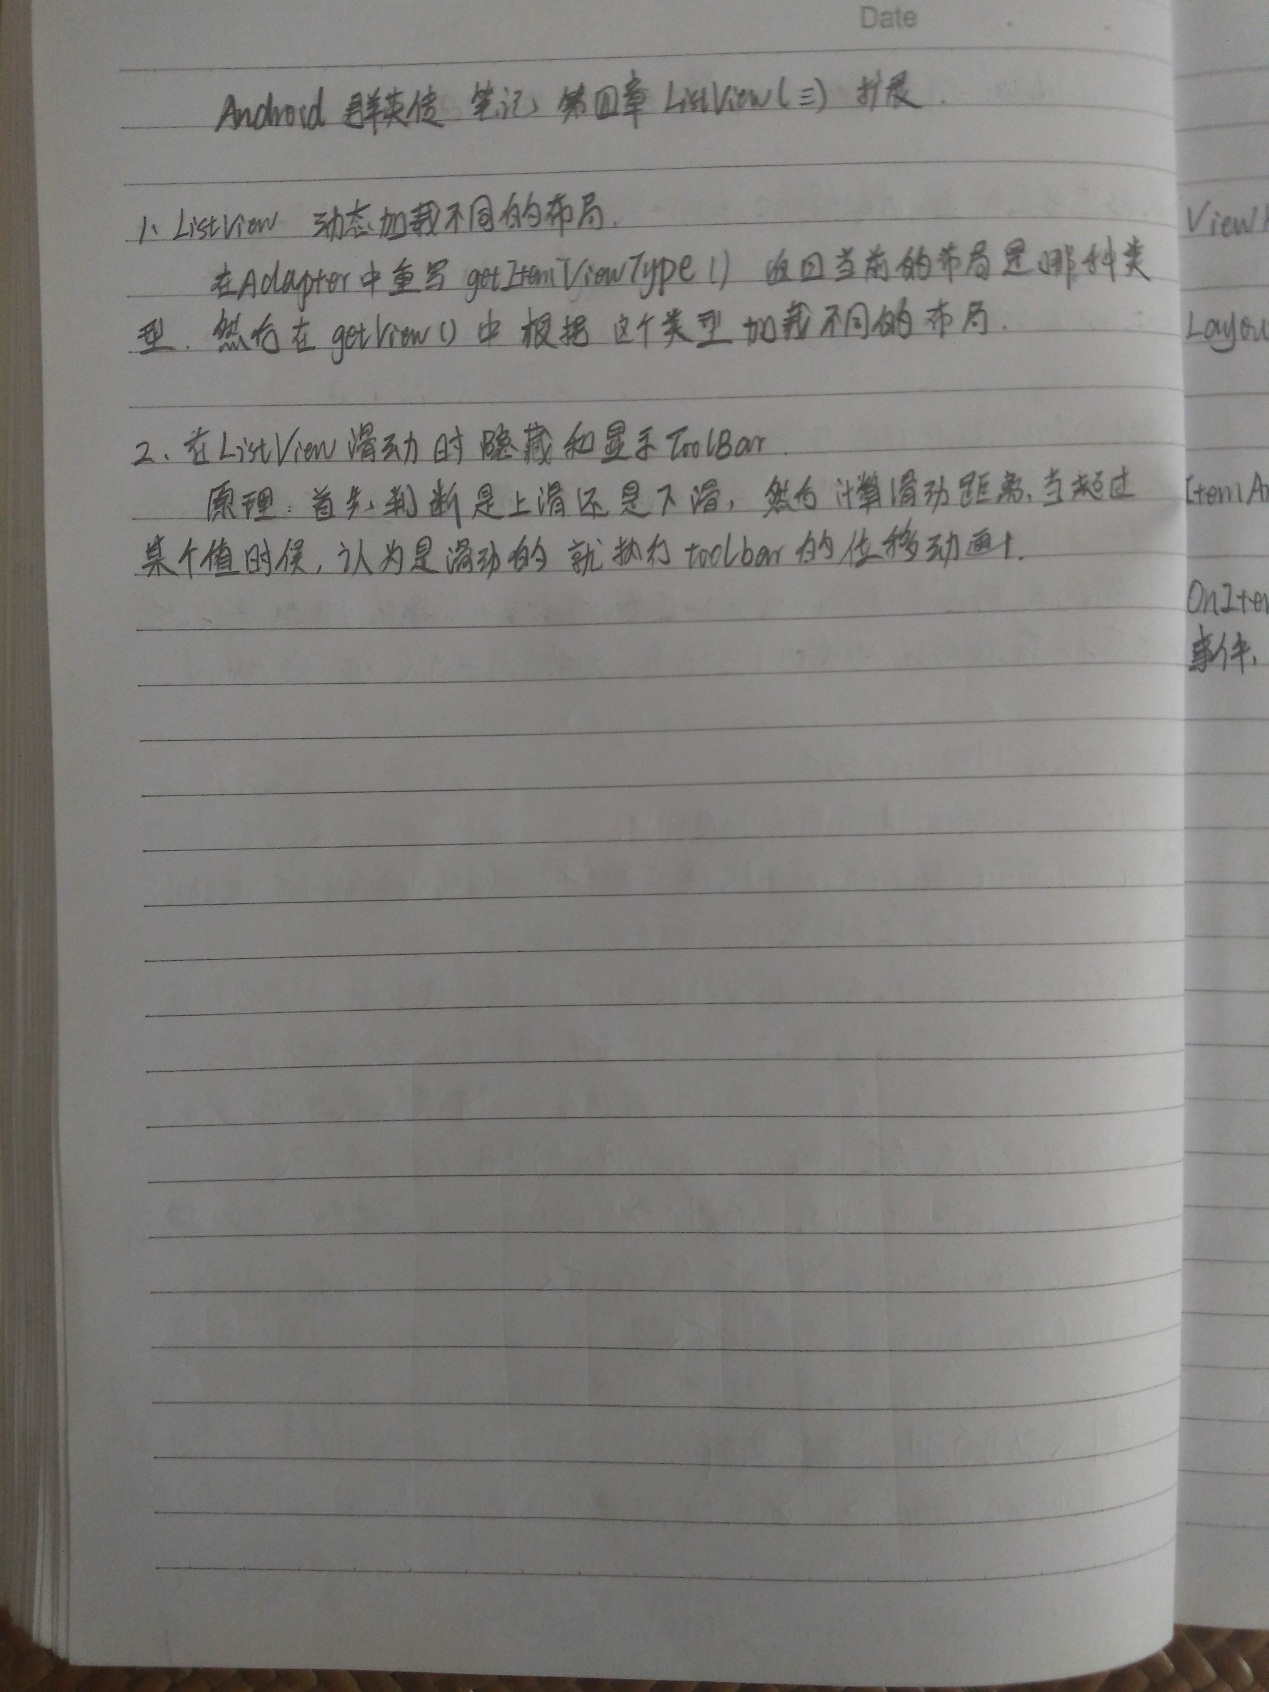 Date
Android 群英传 笔记 第四章 ListView(三) 扩展.
1、ListView 动态加载不同的布局.
在Adapter中重写 getItemViewType() 返回当前的布局是哪种类
型. 然后在 getView() 中 根据 这个类型 加载不同的布局.
2、在ListView滑动时 隐藏和显示ToolBar.
原理: 首先判断是上滑还是下滑, 然后计算滑动距离, 当超过
某个值时候, 认为是滑动的 就执行 toolbar 的位移动画
Layou
ItemAn
OnIte
事件、